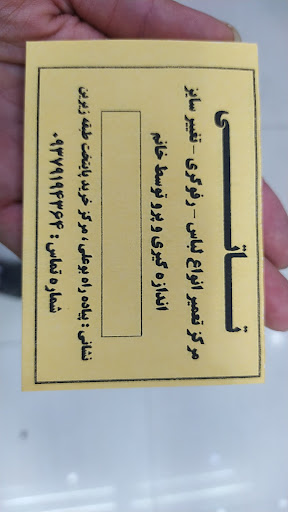 تاتی
مرکز تعمیر انواع لباس - رفوگری - تغییر سایز
اندازه گیری و پرو توسط خانم
نشانی : پیاده راه بوعلی ، مرکز خرید پایتخت طبقه زیرین
شماره تماس : ۰۹۳۷۹۱۹۴۳۶۴